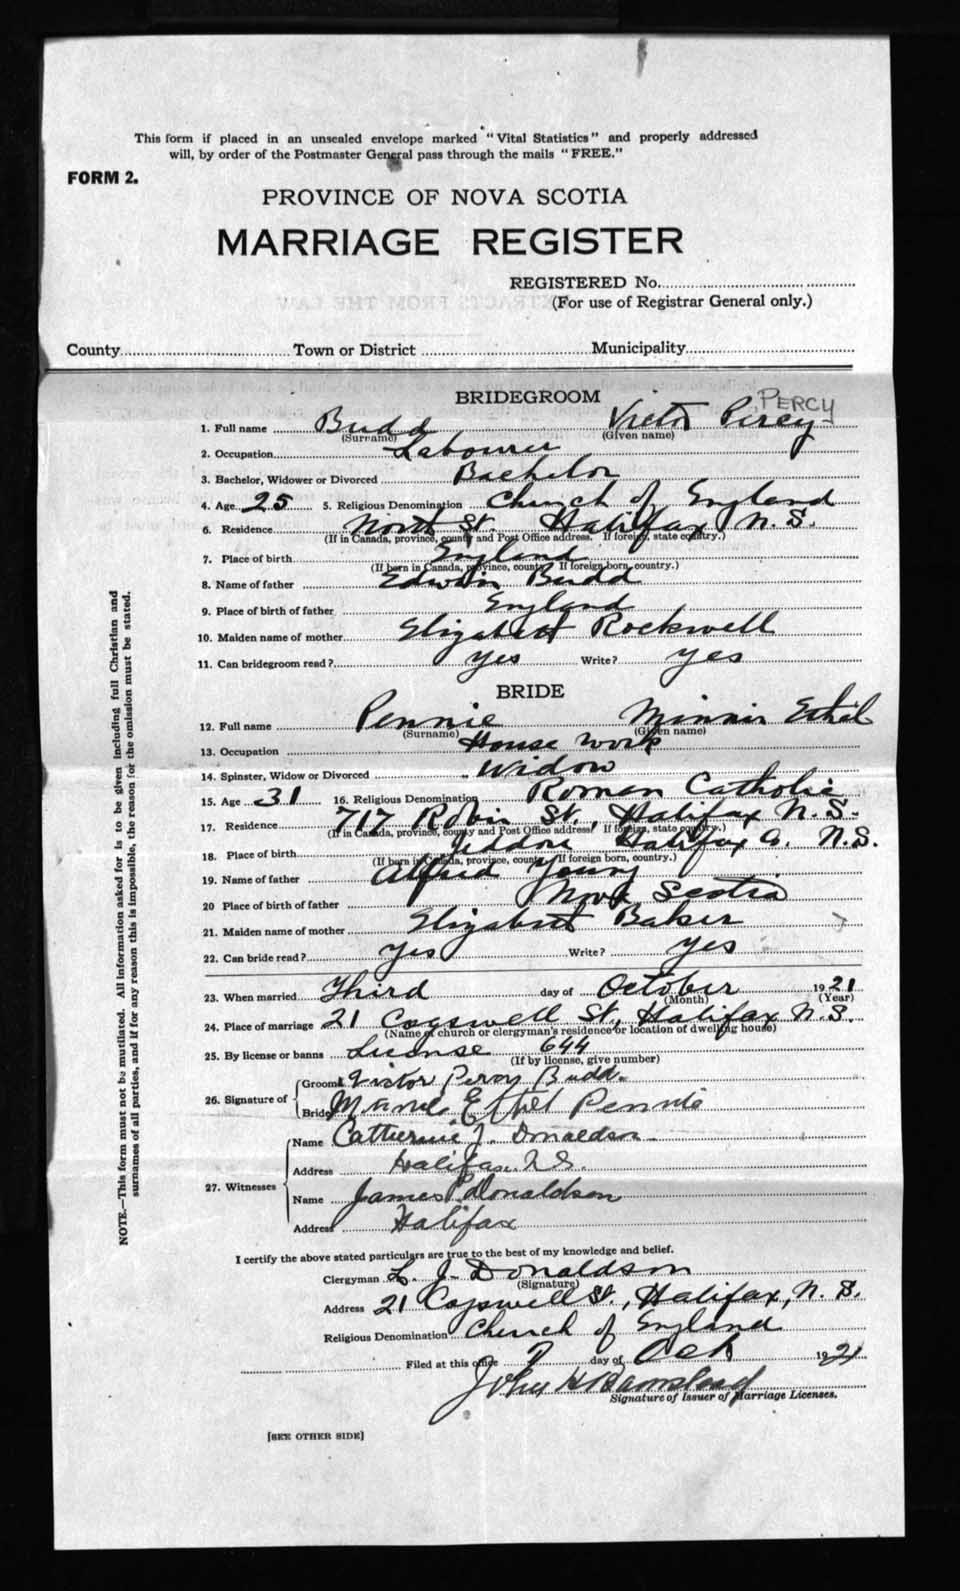 This form if placed in an unsealed envelope marked "Vital Statistics" and properly addressed
will, by order of the Postmaster General pass through the mails "FREE."
FORM 2.
PROVINCE OF NOVA SCOTIA
MARRIAGE REGISTER
REGISTERED No.
(For use of Registrar General only.)
County Town or District Municipality
BRIDEGROOM
PERCY
1. Full name Budd Victor Percy
(Surname) (Given name)
2. Occupation Labourer
3. Bachelor, Widower or Divorced Bachelor
4. Age 25 5. Religious Denomination Church of England
6. Residence North St. Halifax N.S.
(If in Canada, province, county and Post Office address. If foreign, state country.)
7. Place of birth England
(If born in Canada, province, county. If foreign born, country.)
8. Name of father Edwin Budd
9. Place of birth of father England
10. Maiden name of mother Elizabeth Rockwell
11. Can bridegroom read? yes Write? yes
BRIDE
12. Full name Pennie Minnie Ethel
(Surname) (Given name)
13. Occupation House work
14. Spinster, Widow or Divorced Widow
15. Age 31 16. Religious Denomination Roman Catholic
17. Residence 717 Robie St., Halifax N.S.
(If in Canada, province, county and Post Office address. If foreign, state country.)
18. Place of birth Jeddore Halifax Co. N.S.
(If born in Canada, province, county. If foreign born, country.)
19. Name of father Alfred Young
20 Place of birth of father Nova Scotia
21. Maiden name of mother Elizabeth Baker
22. Can bride read? yes Write? yes
23. When married Third day of October 1921
(Month) (Year)
24. Place of marriage 21 Cogswell St., Halifax N.S.
(Name of church or clergyman's residence or location of dwelling house)
25. By license or banns License 644
(If by license, give number)
26. Signature of Groom Victor Percy Budd.
Bride Minnie Ethel Pennie
27. Witnesses Name Catherine J. Donaldson
Address Halifax. N.S.
Name James P. Donaldson
Address Halifax
I certify the above stated particulars are true to the best of my knowledge and belief.
Clergyman L. J. Donaldson
(Signature)
Address 21 Cogswell St., Halifax, N.S.
Religious Denomination Church of England
Filed at this office 7 day of Oct 1921
John H Barnstead
Signature of Issuer of Marriage Licenses.
[SEE OTHER SIDE]
NOTE.—This form must not be mutilated. All information asked for is to be given including full Christian and
surnames of all parties, and if for any reason this is impossible, the reason for the omission must be stated.